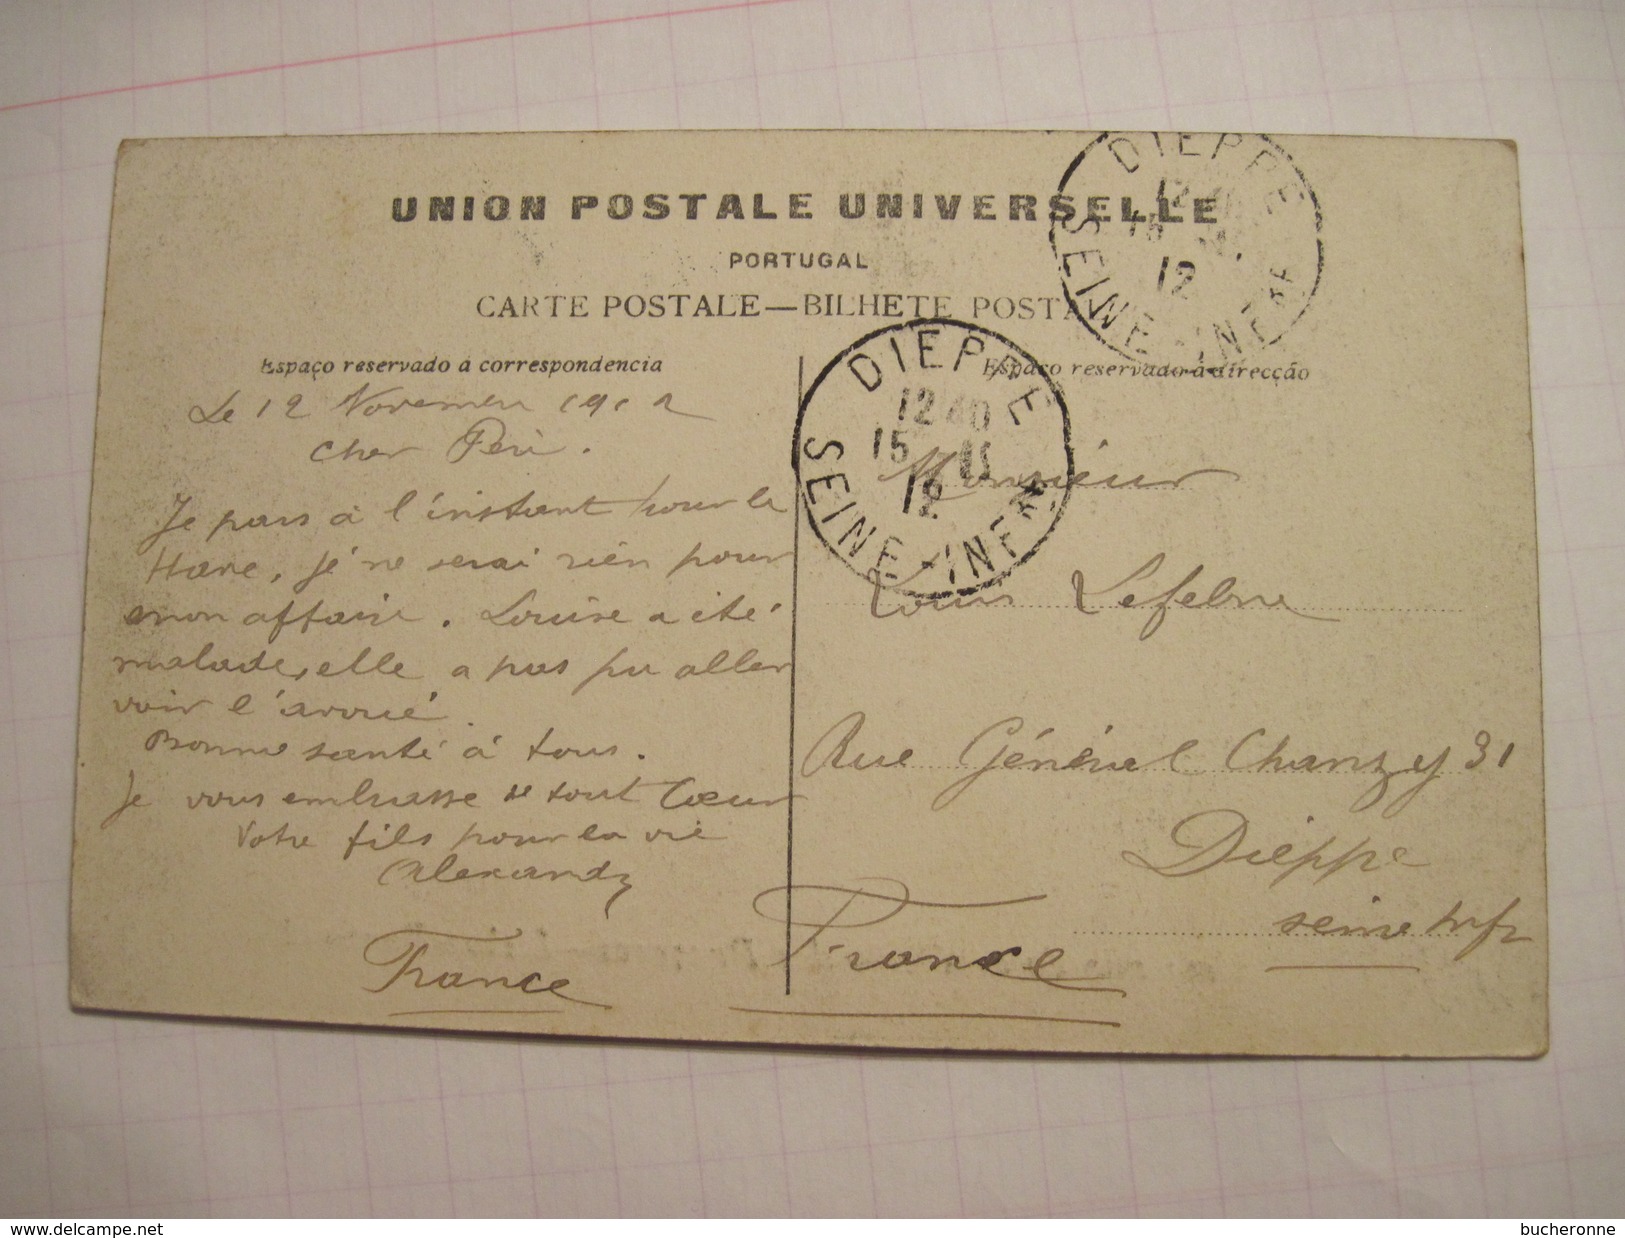 UNION POSTALE UNIVERSELLE
PORTUGAL
CARTE POSTALE—BILHETE POSTA
Espaço reservado á correspondencia
Espaço reservado á direcção
DIEPPE
12
15
12
SEINE-INFRE
DIEPPE
12 40
15 11
12
SEINE-INFRE
Le 12 Novembre 1912
cher Père.
Je pars à l'instant pour la
Havre, je ne serai rien pour
mon affaire. Louise a été
malade, elle a pas pu aller
voir l'avoué.
Bonne santé à tous.
Je vous embrasse de tout Cœur
Votre fils pour la vie
Alexandre
France
Monsieur
Louis Lefebvre
Rue Général Chanzy 31
Dieppe
seine Infre
France
www.delcampe.net
bucheronne